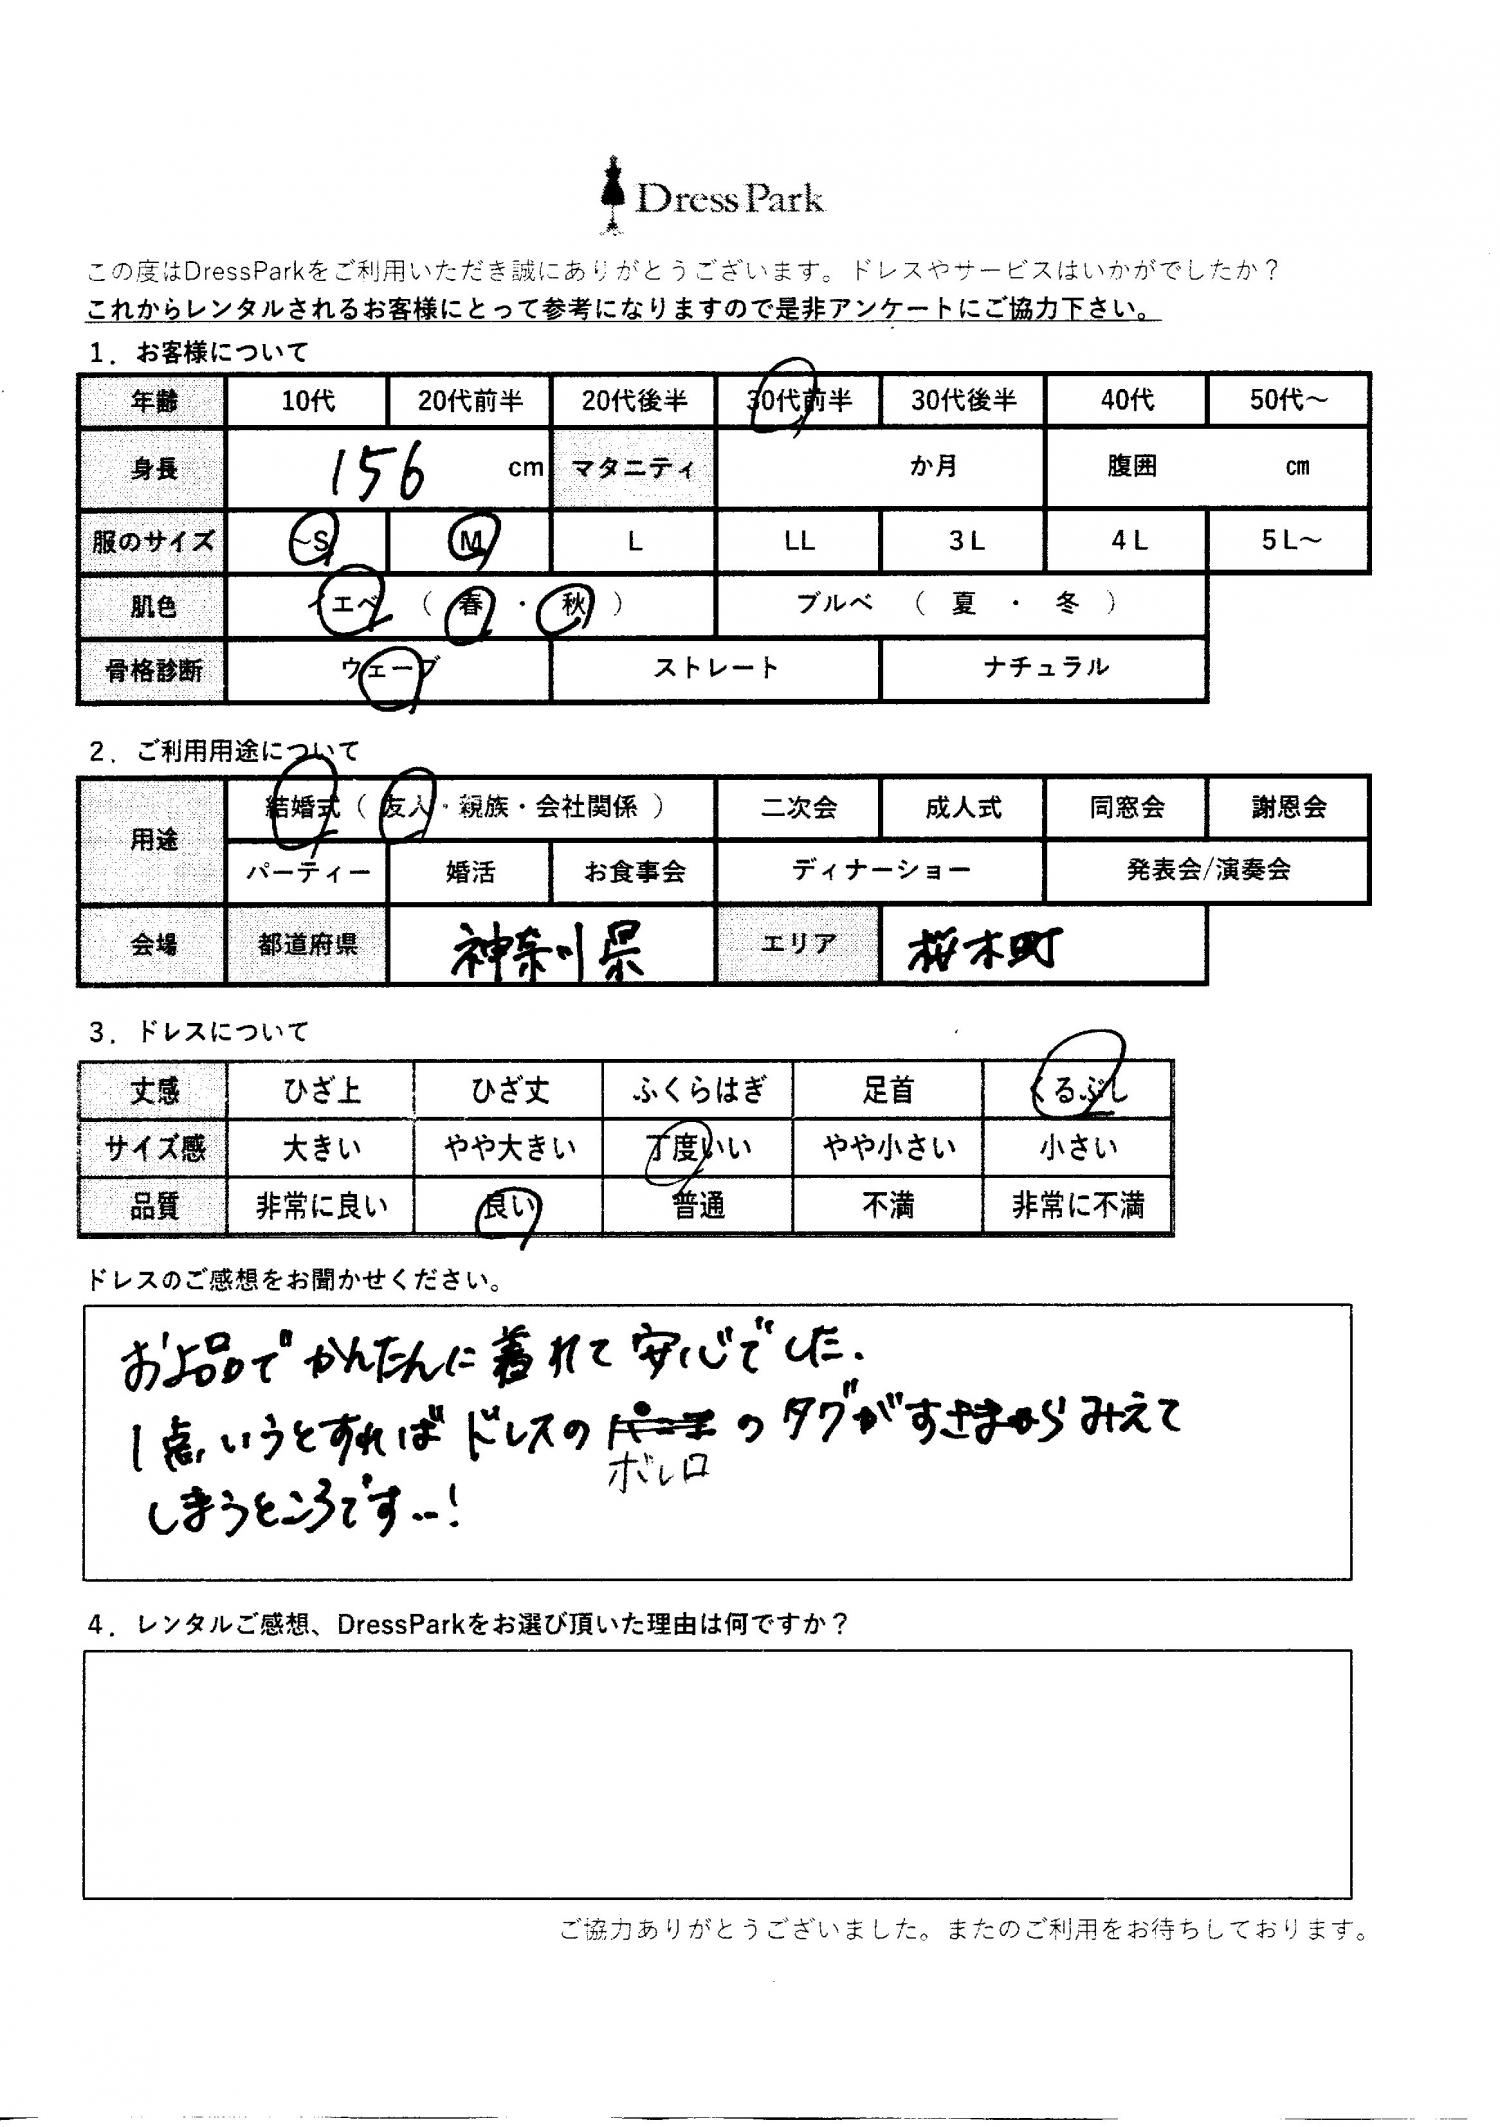 DressPark
この度はDressParkをご利用いただき誠にありがとうございます。ドレスやサービスはいかがでしたか？
これからレンタルされるお客様にとって参考になりますので是非アンケートにご協力下さい。
1．お客様について
年齢 10代 20代前半 20代後半 30代前半 30代後半 40代 50代～
身長 156 cm マタニティ か月 腹囲 cm
服のサイズ ~S M L LL 3L 4L 5L～
肌色 イエベ （ 春 ・ 秋 ） ブルベ （ 夏 ・ 冬 ）
骨格診断 ウェーブ ストレート ナチュラル
2．ご利用用途について
用途 結婚式（ 友人・親族・会社関係 ） 二次会 成人式 同窓会 謝恩会
パーティー 婚活 お食事会 ディナーショー 発表会/演奏会
会場 都道府県 神奈川県 エリア 桜木町
3．ドレスについて
丈感 ひざ上 ひざ丈 ふくらはぎ 足首 くるぶし
サイズ感 大きい やや大きい 丁度いい やや小さい 小さい
品質 非常に良い 良い 普通 不満 非常に不満
ドレスのご感想をお聞かせください。
お上品でかんたんに着れて安心でした.
1点,いうとすればドレスの の タグがすきまからみえて
ボレロ
しまうところです…!
4．レンタルご感想、DressParkをお選び頂いた理由は何ですか？
ご協力ありがとうございました。またのご利用をお待ちしております。